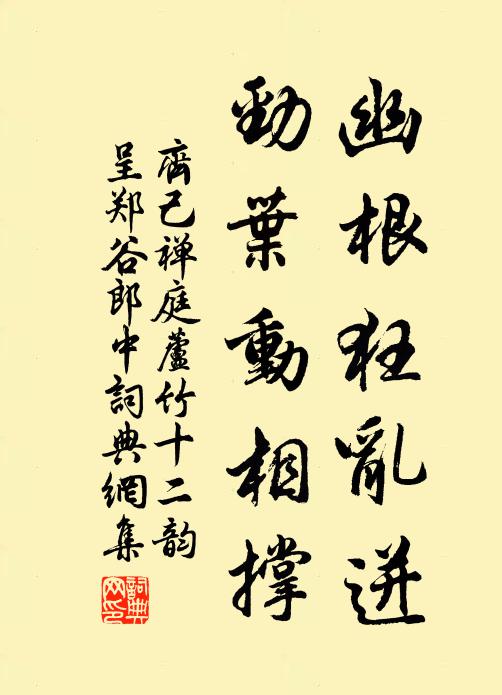 幽根狂亂迸
勁葉動相撐
齊己禅庭蘆竹十二韵
呈郑谷郎中詞典網集